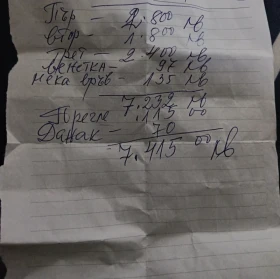 Пър — 2.800 лв
втор — 1.800 лв
трет — 2.400 лв
венетка — 97 лв
нека връв — 135 лв
7.232 лв
Прегле — 115 00
Данак — 70
7.415 00 лв